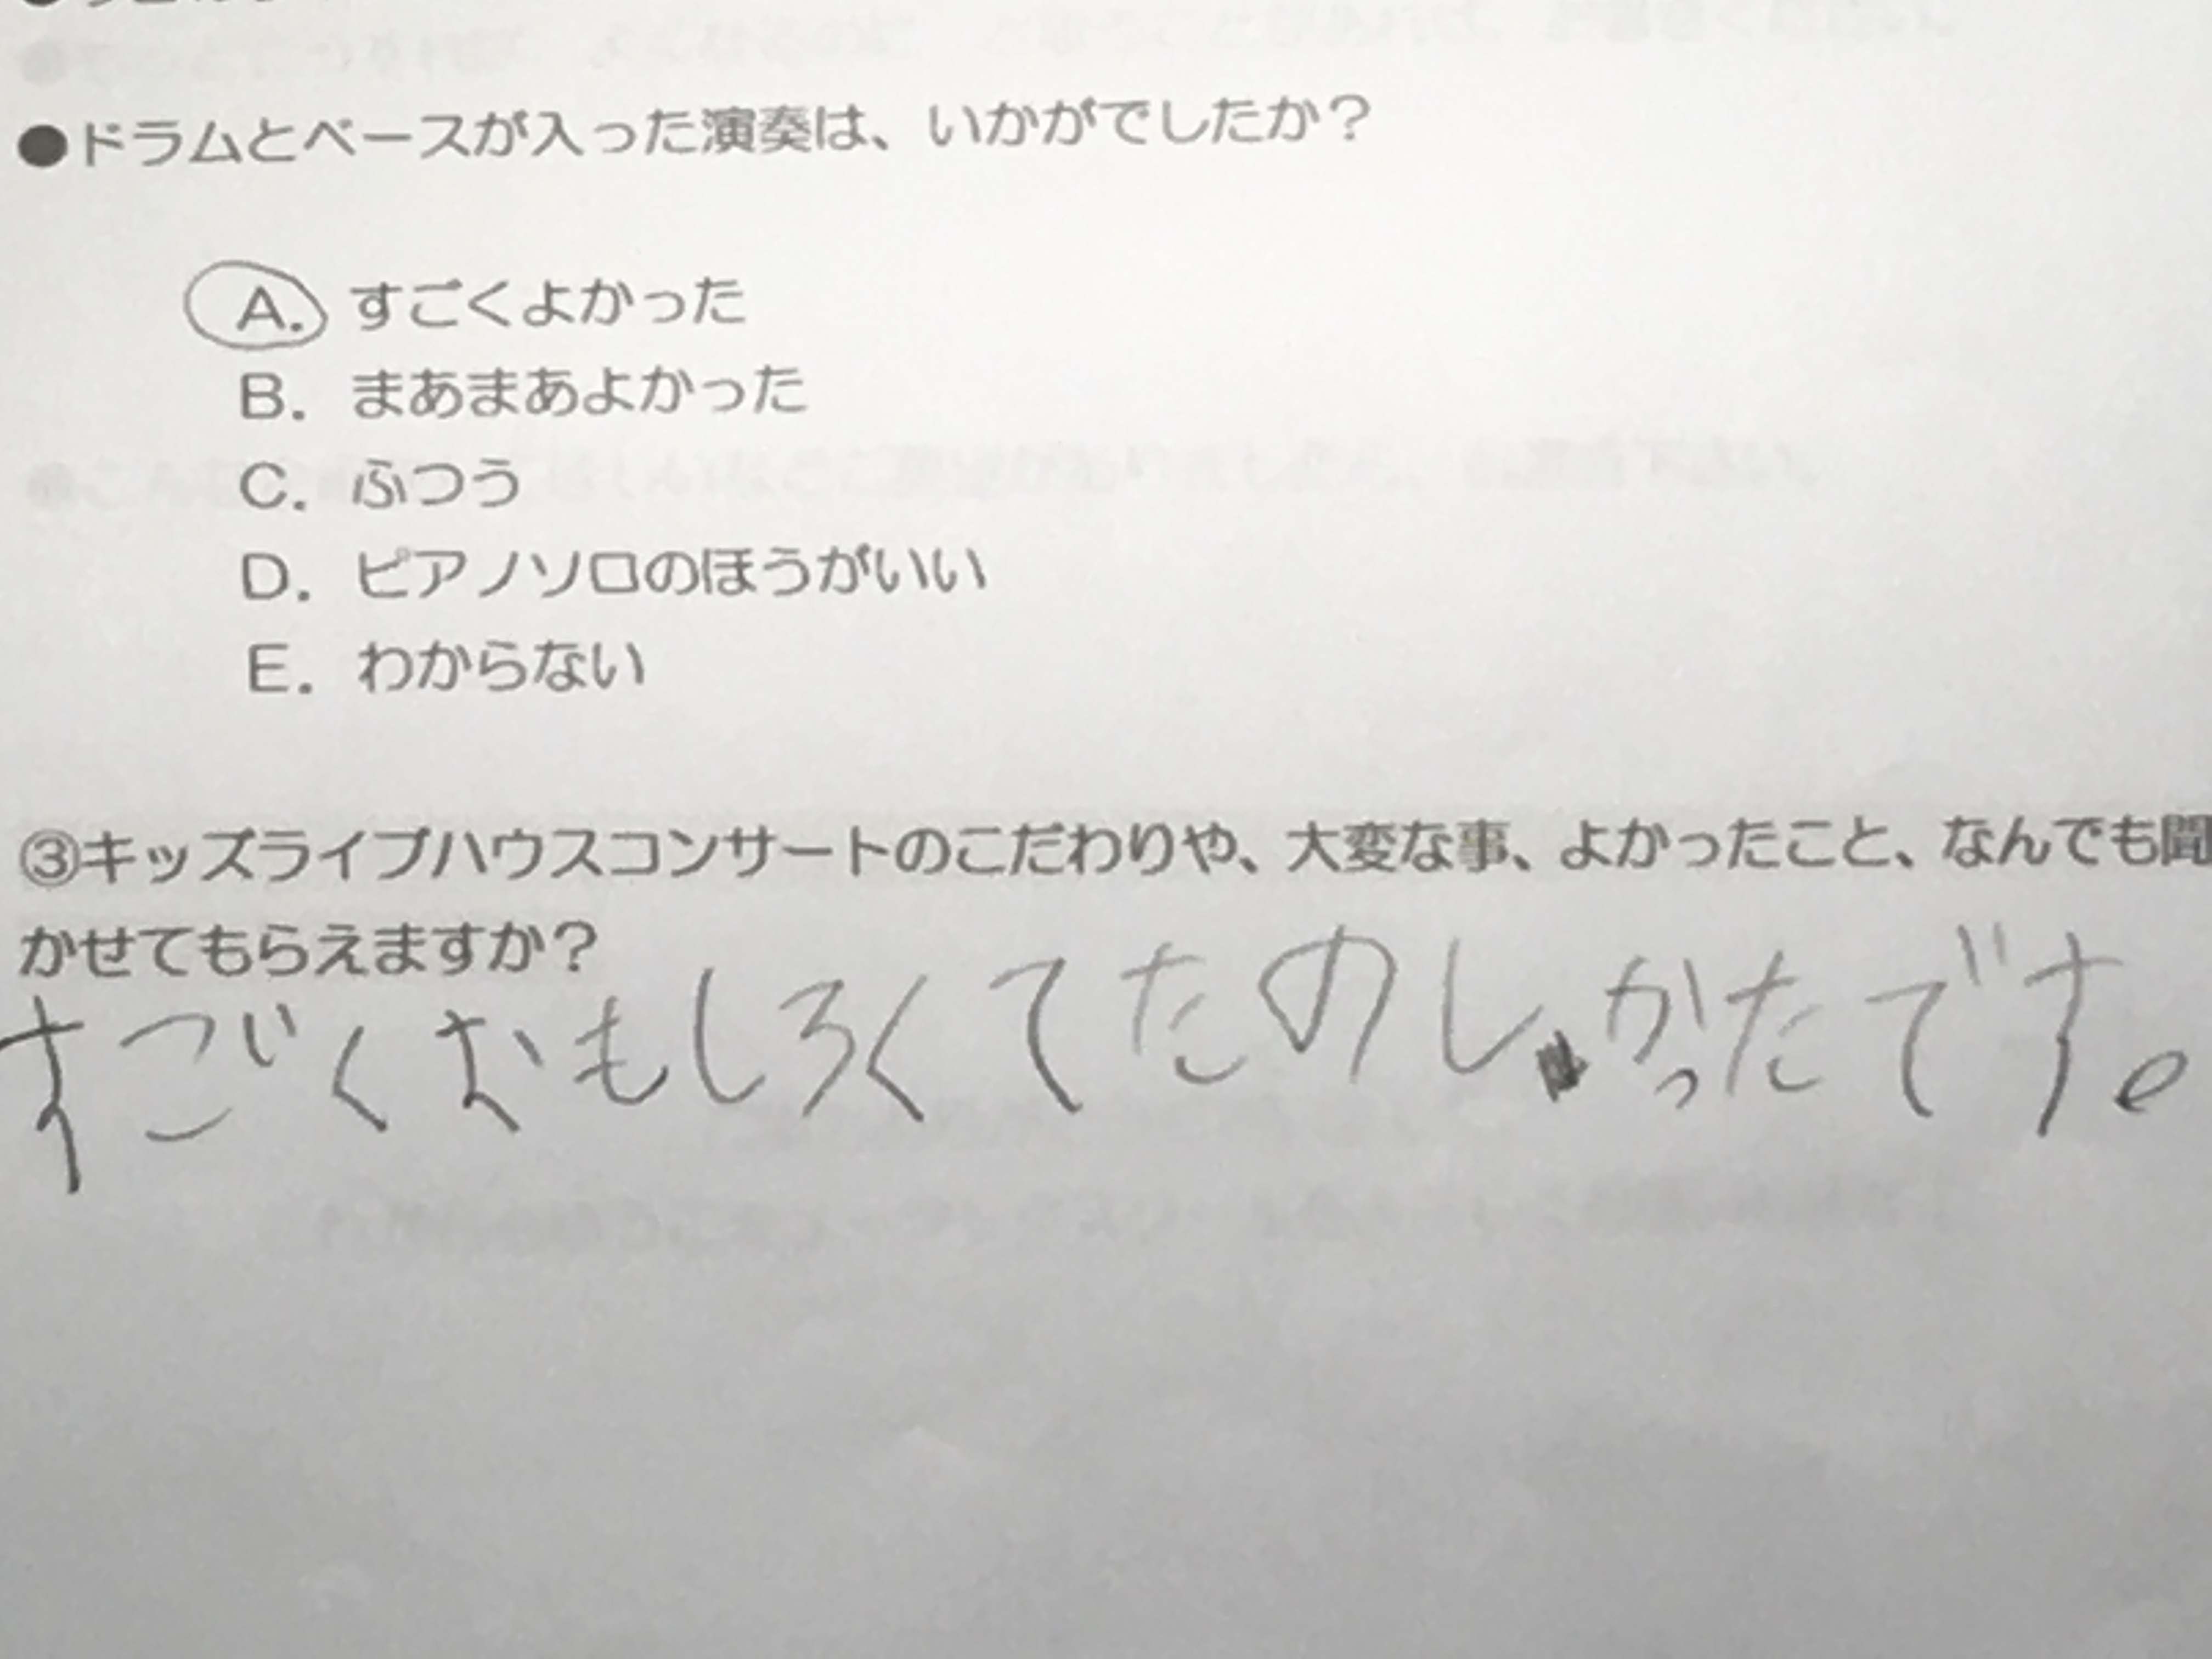 ●ドラムとベースが入った演奏は、いかがでしたか？
A. すごくよかった
B. まあまあよかった
C. ふつう
D. ピアノソロのほうがいい
E. わからない
③キッズライブハウスコンサートのこだわりや、大変な事、よかったこと、なんでも聞
かせてもらえますか？
すごくおもしろくてたのしかったです。